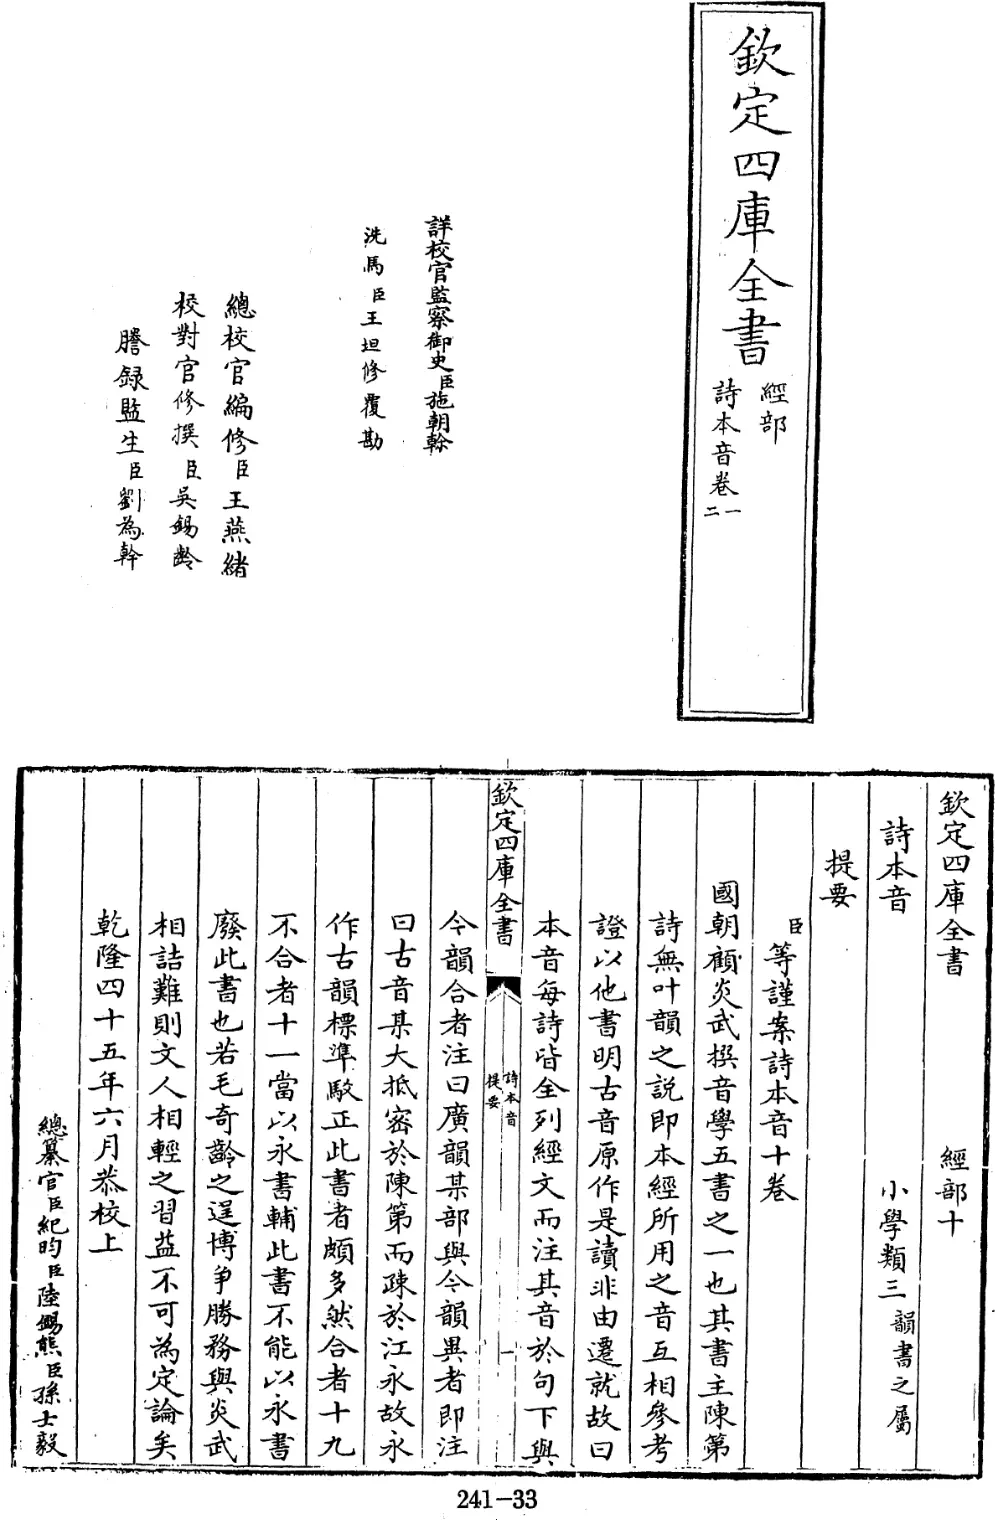 欽定四庫全書
經部
詩本音卷一
二
詳校官監察御史臣施朝幹
洗馬臣王坦修覆勘
總校官編修臣王燕緒
校對官修撰臣吳錫齡
謄錄監生臣劉為幹
欽定四庫全書 經部十
詩本音 小學類三 韻書之屬
提要
臣等謹案詩本音十卷
國朝顧炎武撰音學五書之一也其書主陳第
詩無叶韻之説即本經所用之音互相參考
證以他書明古音原作是讀非由遷就故曰
本音每詩皆全列經文而注其音於句下與
欽定四庫全書
詩本音
提要
一
今韻合者注曰廣韻某部與今韻異者即注
曰古音某大抵密於陳第而疎於江永故永
作古韻標準駁正此書者頗多然合者十九
不合者十一當以永書輔此書不能以永書
廢此書也若毛奇齡之逞博爭勝務與炎武
相詰難則文人相輕之習益不可為定論矣
乾隆四十五年六月恭校上
總纂官臣紀昀臣陸錫熊臣孫士毅
241-33